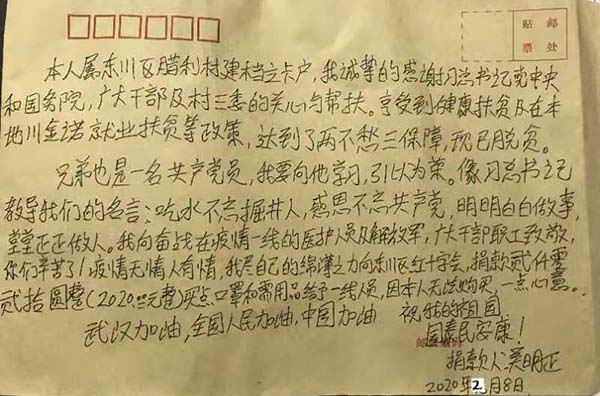 贴 邮
票 处
本人属东川区腊利村建档立卡户,我诚挚的感谢习总书记党中央
和国务院,广大干部及村三委的关心与帮扶。享受到健康扶贫及在本
地川金诺就业扶贫等政策,达到了两不愁三保障,现已脱贫。
兄弟也是一名共产党员,我要向他学习,引以为荣。像习总书记
教导我们的名言:吃水不忘掘井人,感恩不忘共产党,明明白白做事,
堂堂正正做人。我向奋战在疫情一线的医护人员及解放军,广大干部职工致敬,
你们辛苦了!疫情无情人有情,我尽自己的绵薄之力向东川区红十字会,捐款贰仟零
贰拾圆整(2020.00元整)买点口罩和需用品给予一线人员,因本人无法购买,一点心意。
武汉加油,全国人民加油,中国加油 祝我的祖国
国泰民安康!
捐款人:吴明正
2020年2月8日